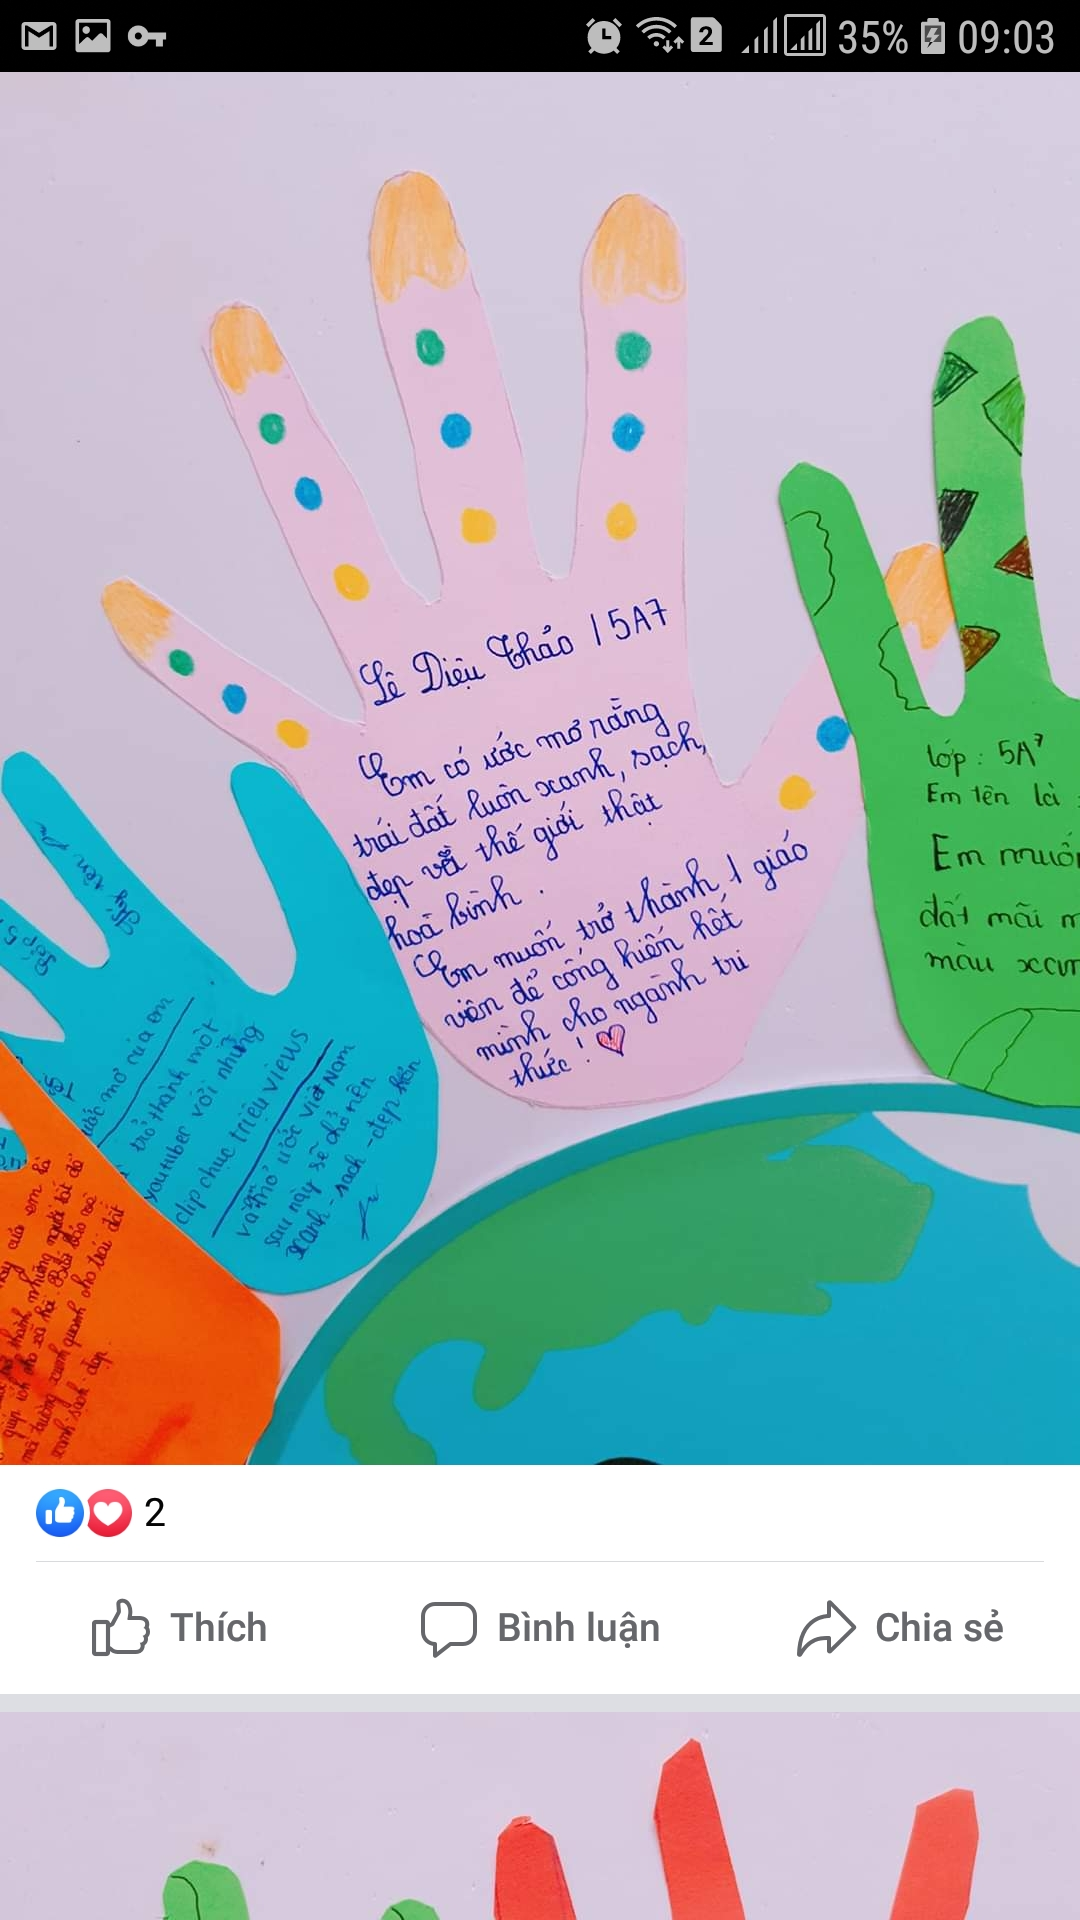 2
35%
09:03
Lê Diệu Thảo / 5A7
Em có ước mơ rằng
trái đất luôn xanh, sạch,
đẹp về thế giới thật
hoà bình .
Em muốn trở thành 1 giáo
viên để cống hiến hết
mình cho ngành tri
thức !
lớp : 5A7
Em tên là
Em muốn
đất mãi m
màu xan
Lớp 5
ước mơ của em
trở thành một
youtuber với những
clip chục triệu views
và mơ ước Việt Nam
sau này sẽ trở nên
xanh - sạch - đẹp hơn
của em là
thành những người
cho xã hội
môi trường xung quanh cho trái đất
xanh sạch đẹp.
2
Thích
Bình luận
Chia sẻ